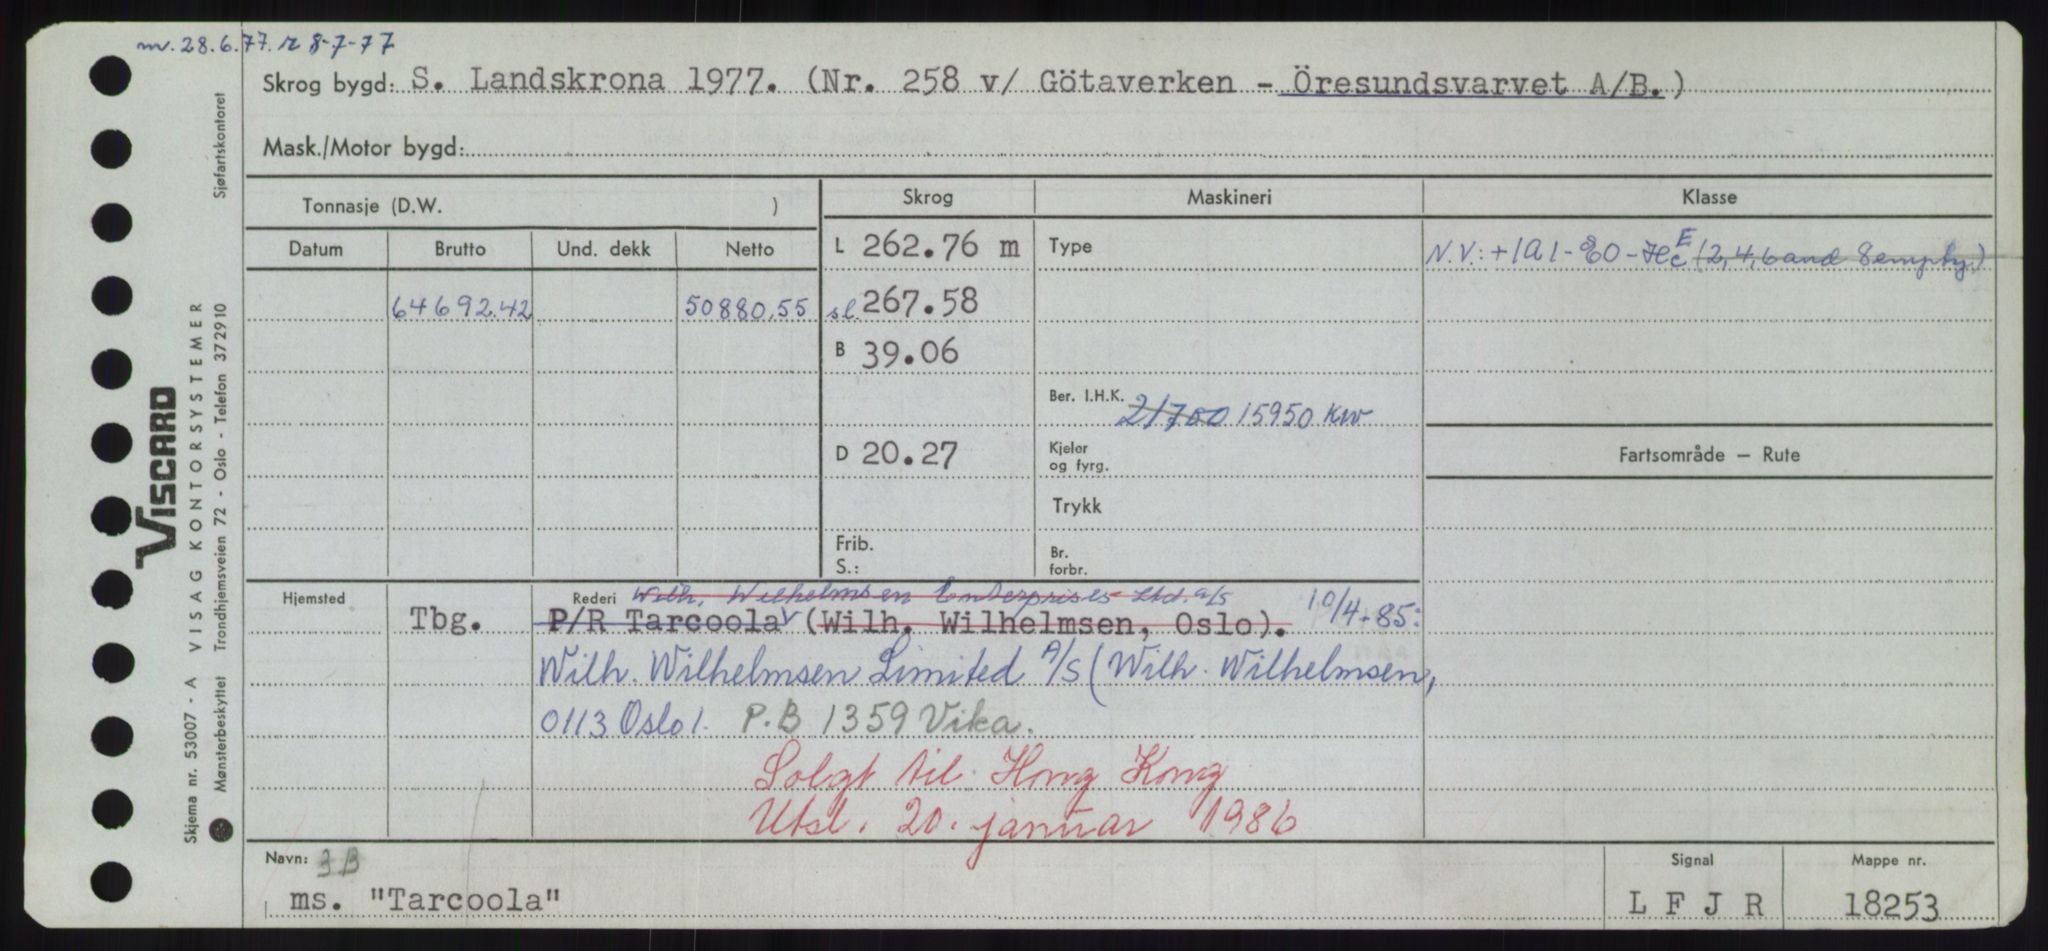 mv. 28.6.77. r 8-7-77
Skrog bygd: S. Landskrona 1977. (Nr. 258 v/ Götaverken - Öresundsvarvet A/B.)
Mask./Motor bygd:
Tonnasje (D.W. )
Skrog
Maskineri
Klasse
Datum
Brutto
Und. dekk
Netto
L 262.76 m
Type
N.V.: +1A1-EO-HC E (2,4,6 and 8 empty)
64692.42
50880,55
sl. 267.58
B 39.06
Ber. I.H.K. 21700 15950 kw
D 20.27
Kjeler
og fyrg.
Fartsområde — Rute
Trykk
Frib.
S.:
Br.
forbr.
Hjemsted
Rederi Wilh. Wilhelmsen Enterprises Ltd. A/S
Tbg.
P/R Tarcoola (Wilh. Wilhelmsen, Oslo). 10/4-85:
Wilh. Wilhelmsen Limited A/S (Wilh. Wilhelmsen,
0113 Oslo 1. P.B 1359 Vika.
Solgt til Hong Kong
Utsl. 20. januar 1986
Navn: 3B
ms. "Tarcoola"
Signal
L F J R
Mappe nr.
18253
VISCARD
Skjema nr. 53007 - A VISAG KONTORSYSTEMER
Mønsterbeskyttet Trondhjemsveien 72 - Oslo - Telefon 372910
Sjøfartskontoret